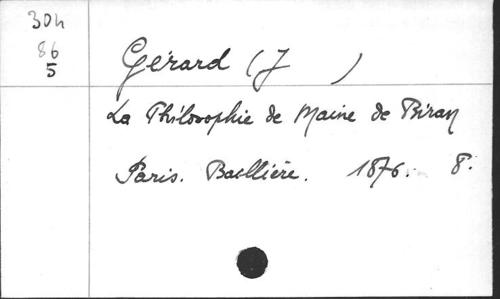 30h
86
5
Gérard (J )
La Philosophie de Maine de Biran
Paris. Baillière. 1876. 8.